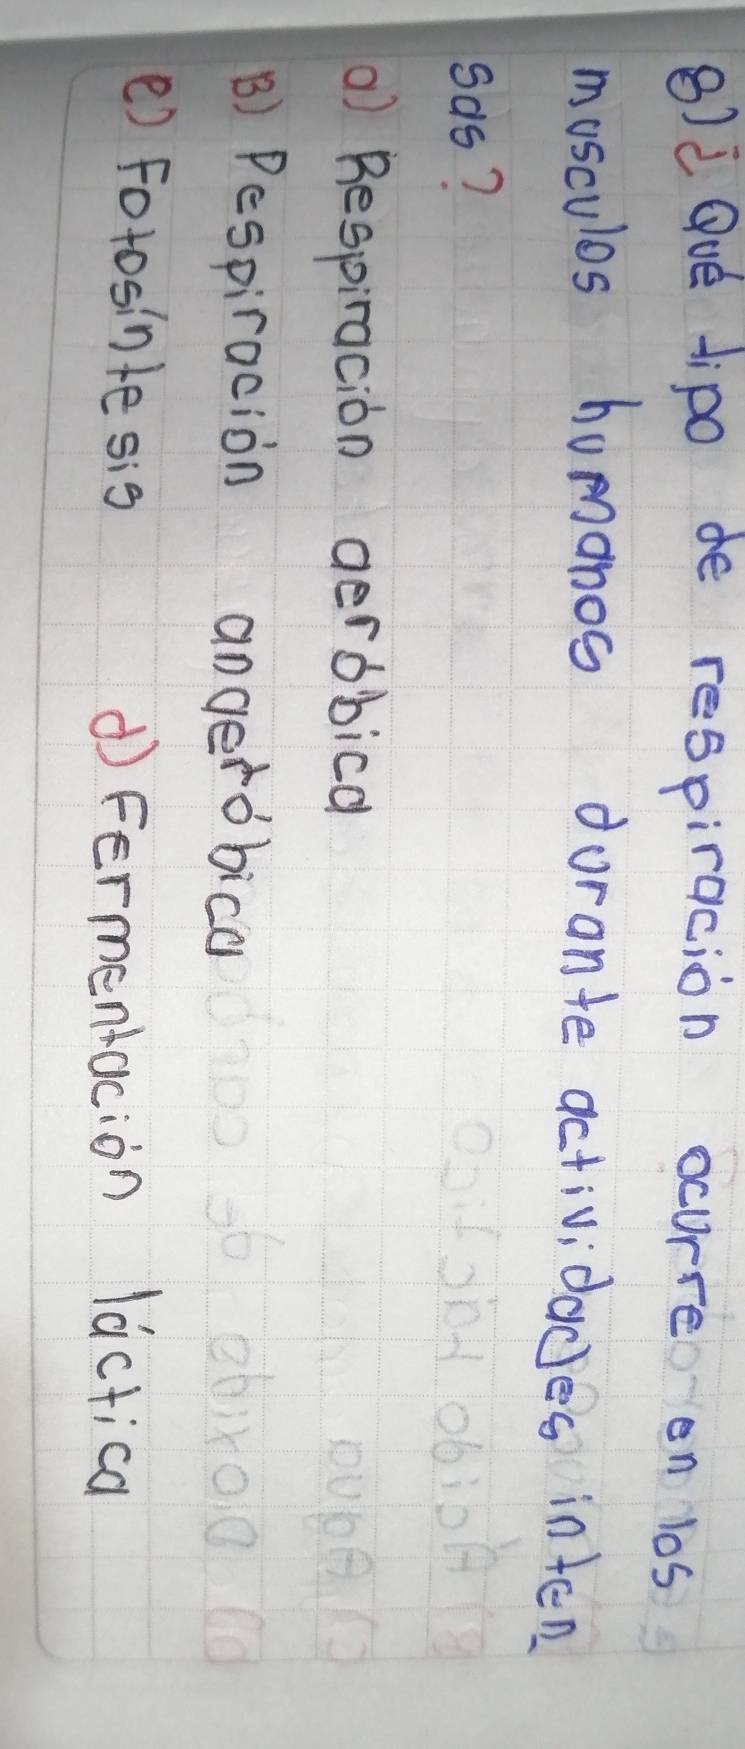 8) ¿Qué tipo de respiración ocurre en los
musculos humanos durante actividades inten_
sas?
a) Respiración aeróbica
B) Respiración anaeróbica
c) Fotosíntesis d) Fermentación láctica